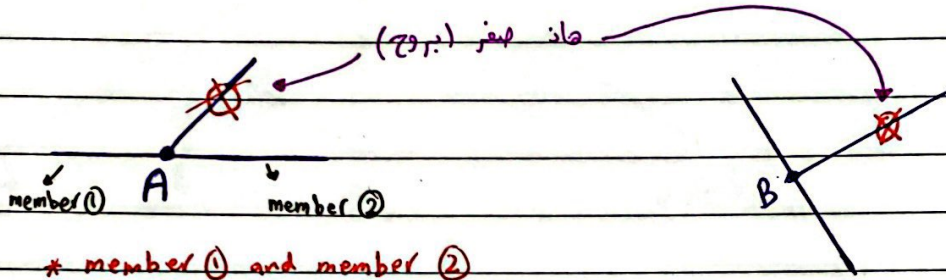 هاد صفر (بروح)
A
B
member ①
member ②
* member ① and member ②